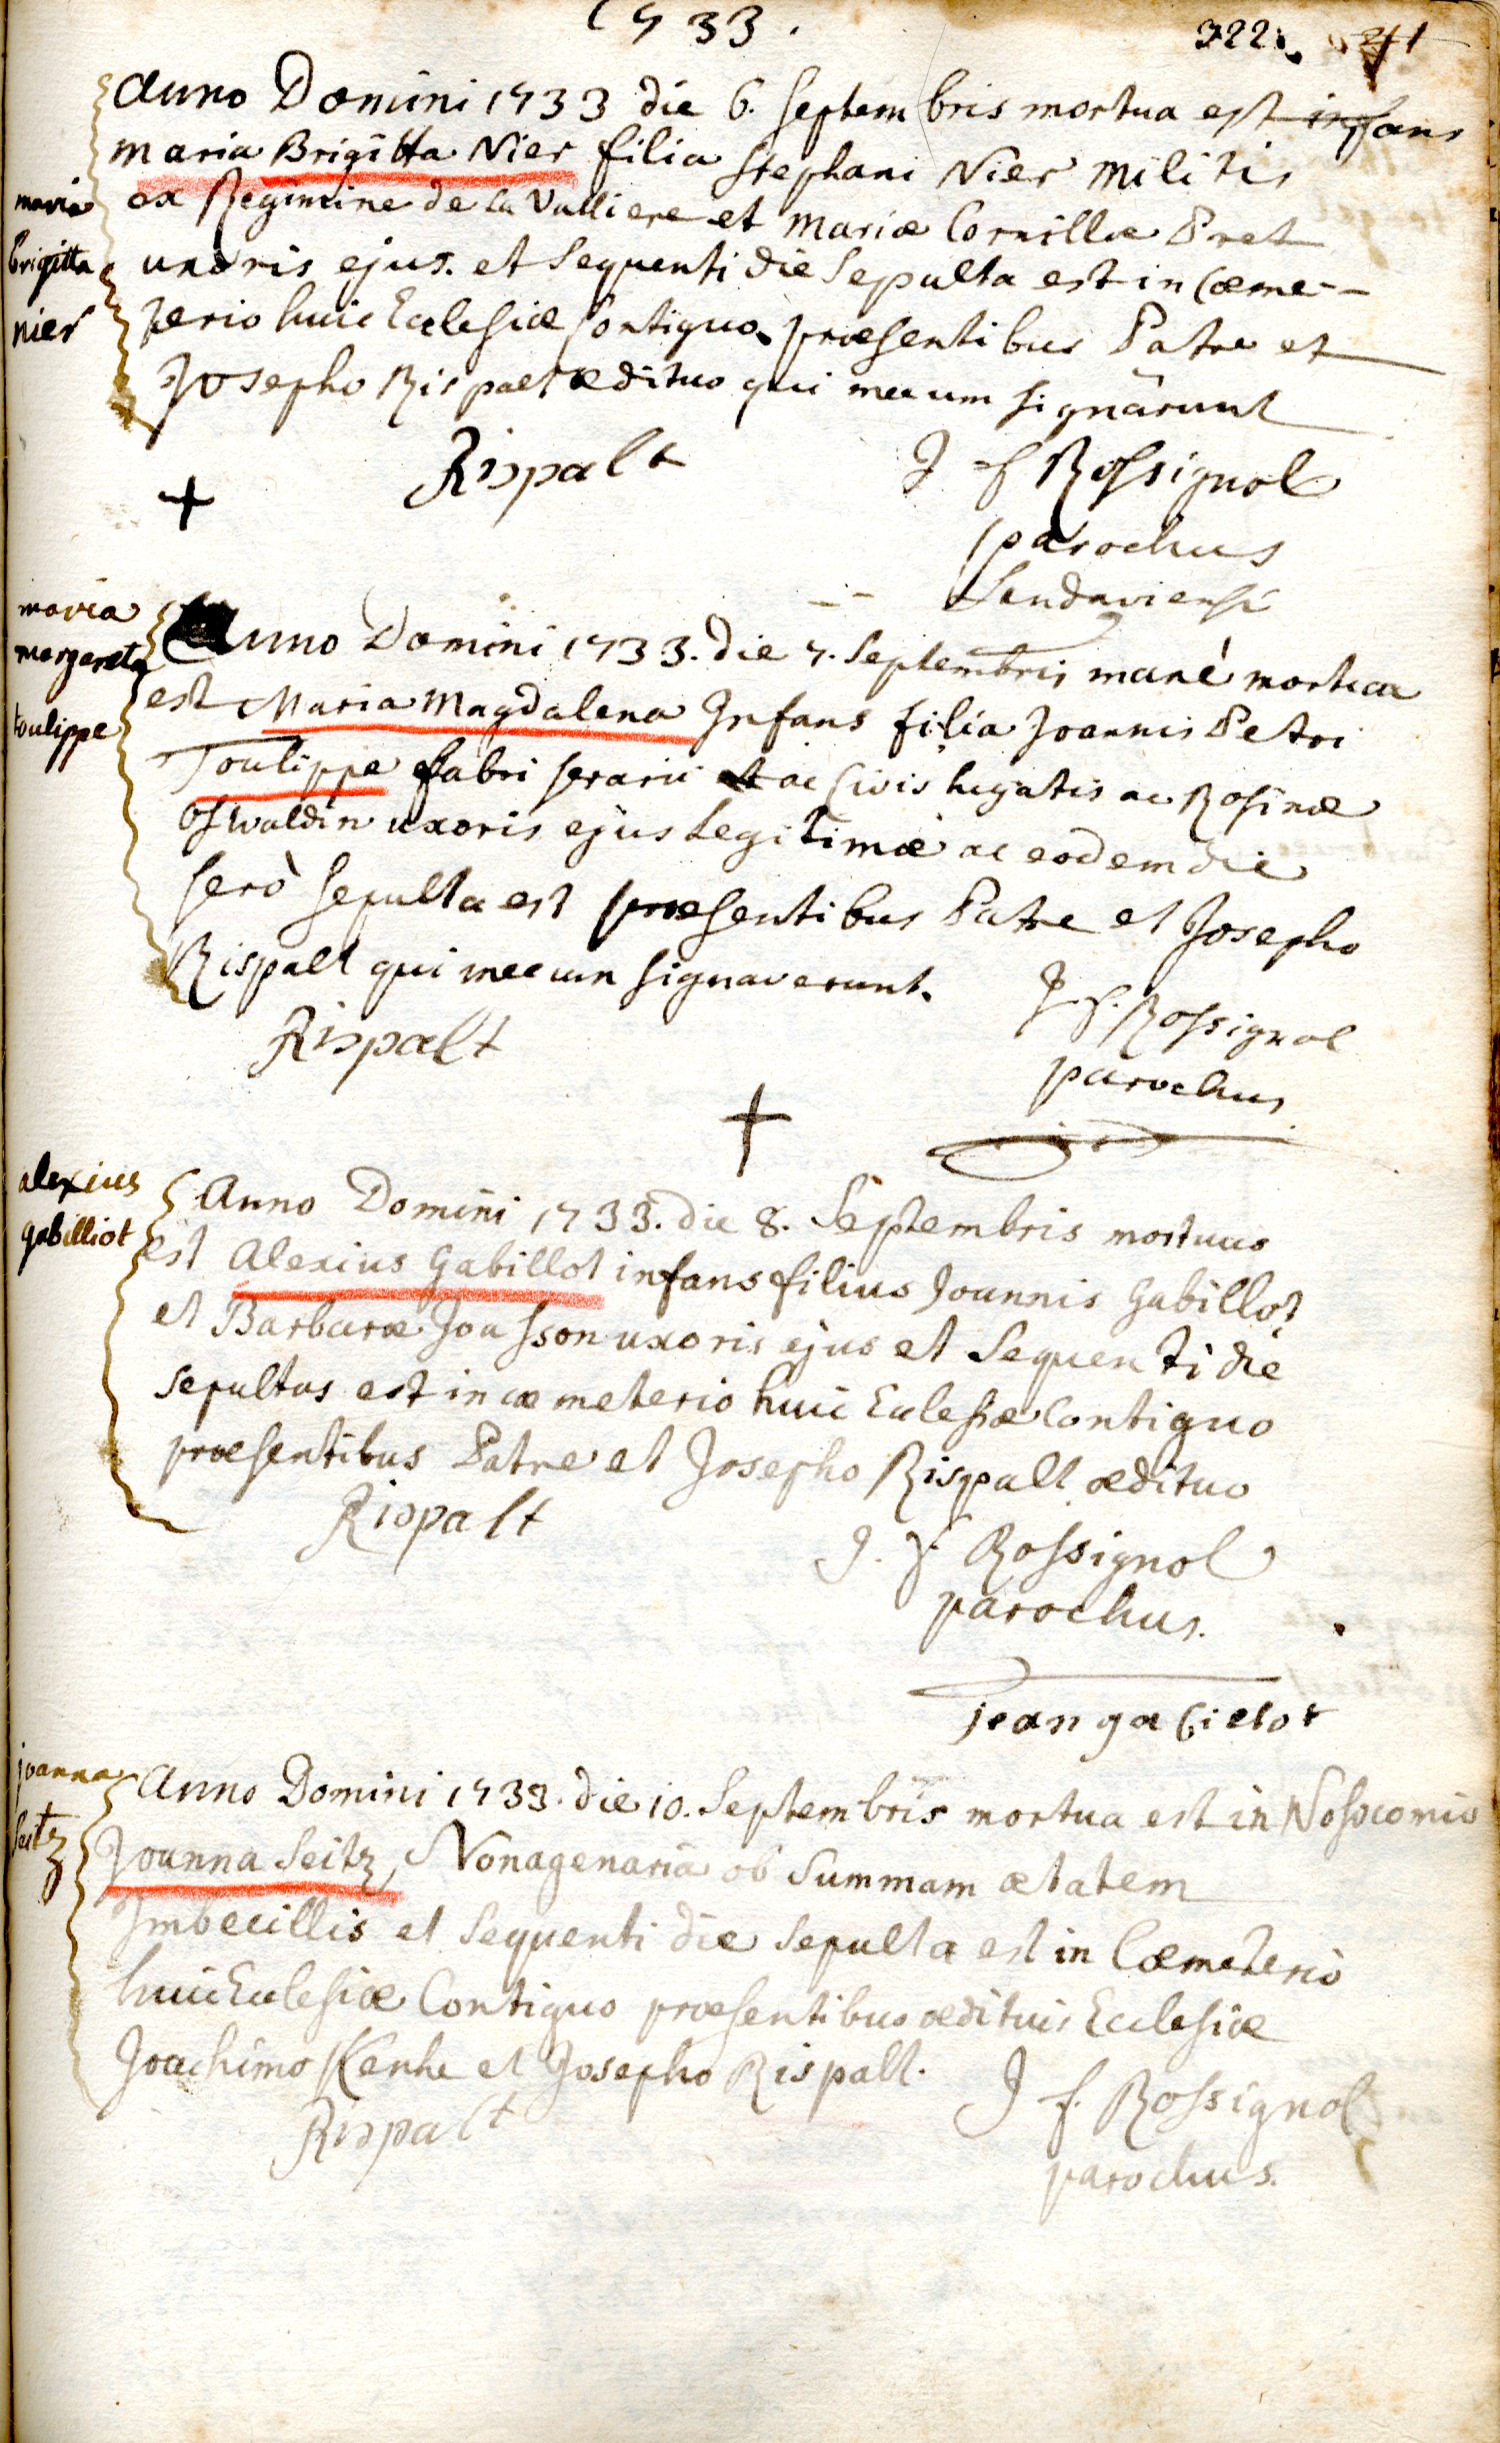 1733.
322.
Anno Domini 1733 die 6. septembris mortua est infans
maria Brigitta Nier filia Stephani Nier militis
ex Regimine de la Valliere et Mariæ Cornillæ Pret
uxoris ejus. et sequenti die Sepulta est in Cœme-
terio huic Ecclesiæ Contiguo præsentibus Patre et
Josepho Rispalt ædituo qui mecum signârunt
maria
brigitta
nier
Rispalt
J f Rossignol
parochus
Landaviensis
Anno Domini 1733. die 7. Septembris manè mortua
est Maria Magdalena Infans filia Joannis Petri
Toulippe fabri serarii ac Civis hujatis ac Rosinæ
Oswaldin uxoris ejus Legitimæ ac eodem die
serò sepulta est præsentibus Patre et Josepho
Rispalt qui mecum signaverunt.
maria
margareta
toulippe
Rispalt
J. f. Rossignol
parochus
Anno Domini 1733. die 8. Septembris mortuus
est Alexius Gabillot infans filius Joannis Gabillot
et Barbaræ Joasson uxoris ejus et Sequenti die
sepultus est in cœmeterio huic Eclesiæ Contiguo
præsentibus Patre et Josepho Rispalt ædituo
alexius
gabilliot
Rispalt
J. f. Rossignol
parochus.
jean gabielot
Anno Domini 1733. die 10. Septembris mortua est in Nosocomio
Joanna Seitz, Nonagenaria ob Summam ætatem
Imbecillis et Sequenti die sepulta est in Cœmeterio
huic Eclesiæ Contiguo præsentibus ædituis Ecclesiæ
Joachimo Kenhe et Josepho Rispalt.
joanna
seitz
Rispalt
J f. Rossignol
parochus.